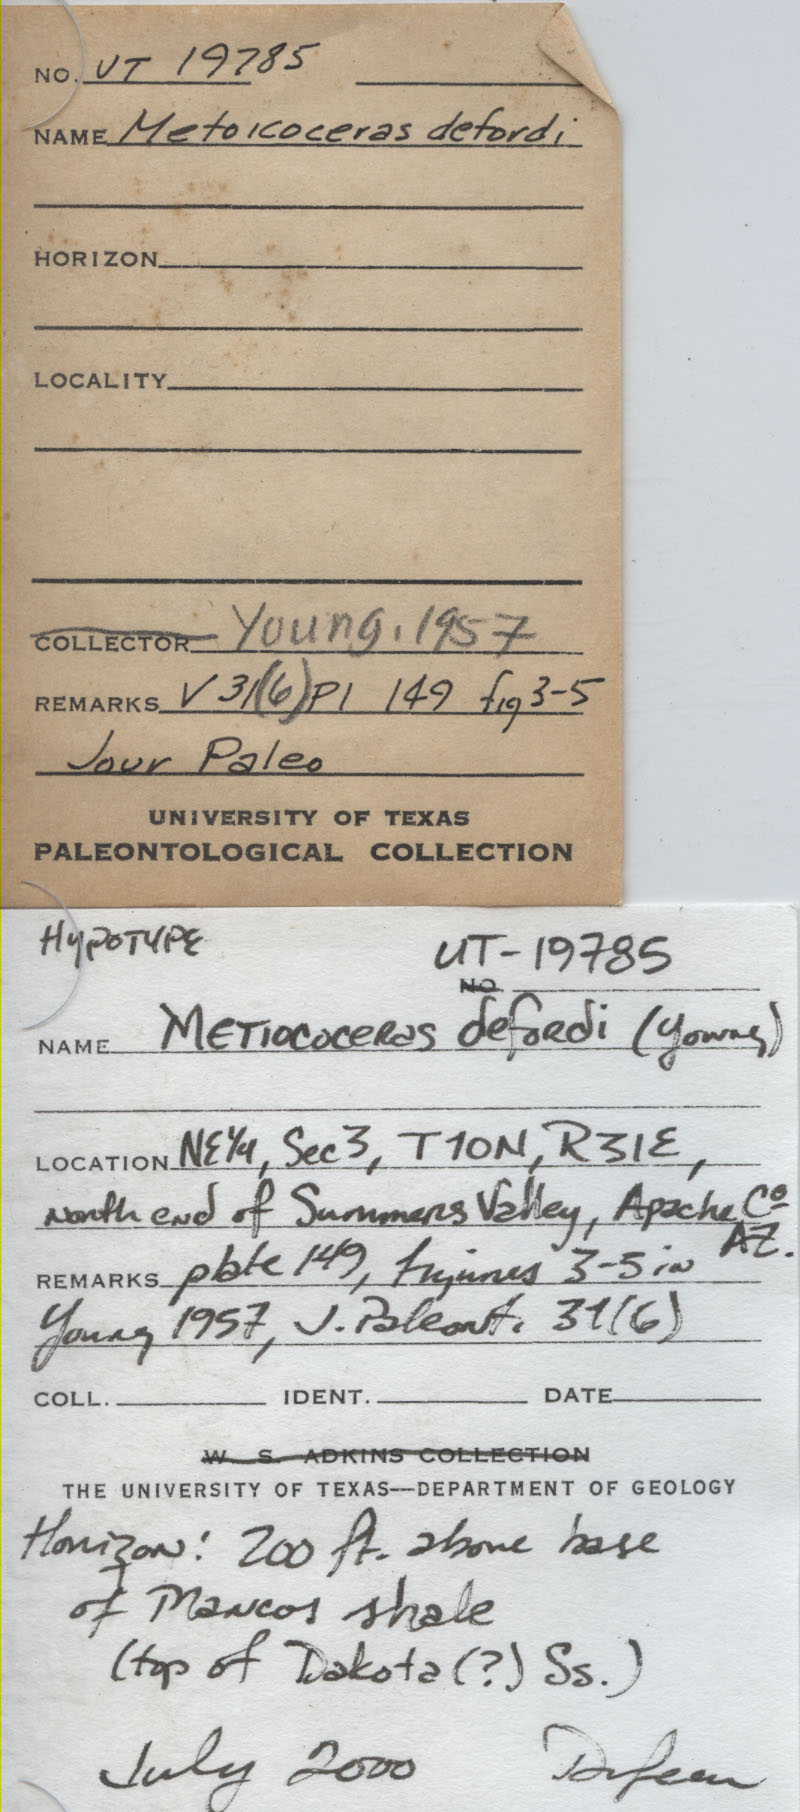 NO. UT 19785
NAME Metoicoceras defordi
HORIZON
LOCALITY
COLLECTOR Young, 1957
REMARKS V 31(6) Pl 149 fig 3-5
Jour Paleo
UNIVERSITY OF TEXAS
PALEONTOLOGICAL COLLECTION
HYPOTYPE UT-19785
NO.
NAME METIOCOCERAS defordi (Young)
LOCATION NE¼, Sec 3, T10N, R31E,
North end of Summers Valley, Apache Co
AZ.
REMARKS plate 149, figures 3-5 in
Young 1957, J. Paleont. 31(6)
COLL. IDENT. DATE
W. S. ADKINS COLLECTION
THE UNIVERSITY OF TEXAS—DEPARTMENT OF GEOLOGY
Horizon: 200 ft. above base
of Mancos shale
(top of Dakota (?) Ss.)
July 2000